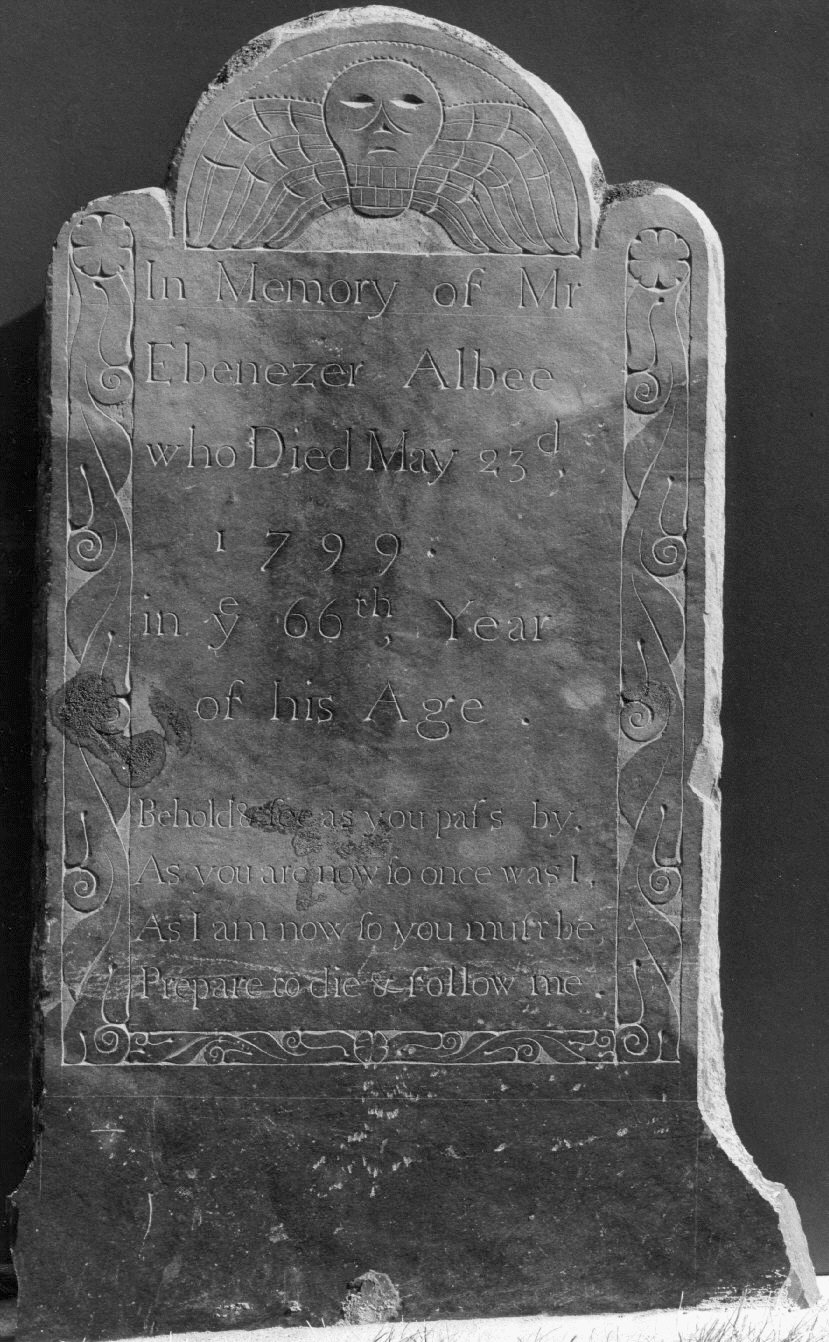 In Memory of Mr
Ebenezer Albee
who Died May 23d,
1799.
in ye 66th, Year
of his Age.
Behold & ſee as you paſs by,
As you are now ſo once was I,
As I am now ſo you muſt be,
Prepare to die & follow me.